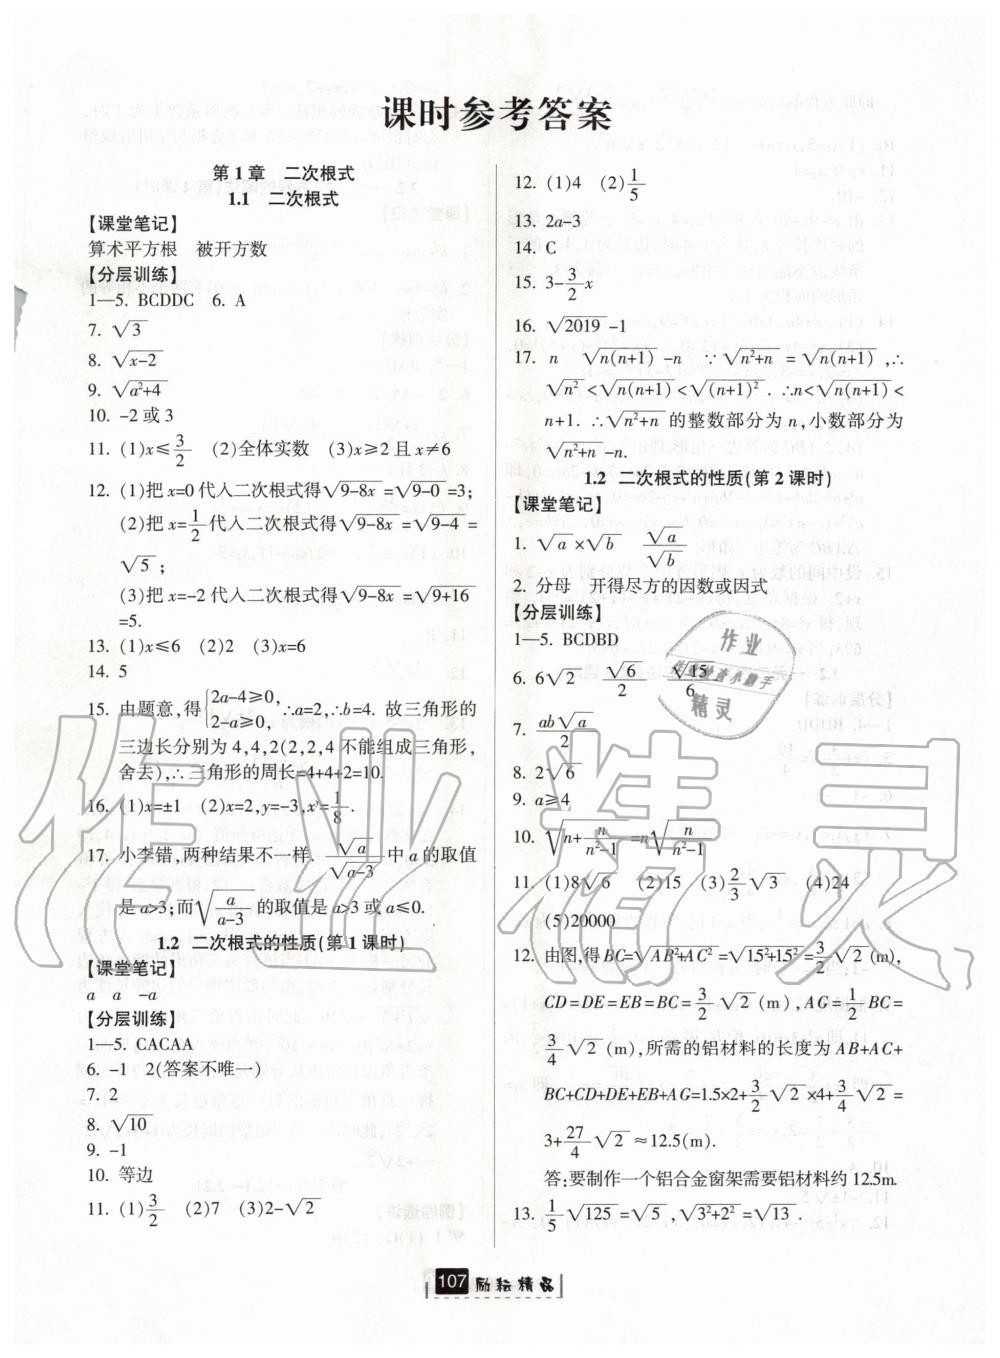 课时参考答案
第1章 二次根式
1.1 二次根式
【课堂笔记】
算术平方根 被开方数
【分层训练】
1—5. BCDDC 6. A
7. √3
8. √(x-2)
9. √(a²+4)
10. -2或3
11. (1)x≤3/2 (2)全体实数 (3)x≥2且x≠6
12. (1)把x=0代入二次根式得√(9-8x)=√(9-0)=3;
(2)把x=1/2代入二次根式得√(9-8x)=√(9-4)=
√5;
(3)把x=-2代入二次根式得√(9-8x)=√(9+16)
=5.
13. (1)x≤6 (2)2 (3)x=6
14. 5
15. 由题意,得{2a-4≥0, 2-a≥0, ∴a=2,∴b=4. 故三角形的
三边长分别为4,4,2(2,2,4不能组成三角形,
舍去),∴三角形的周长=4+4+2=10.
16. (1)x=±1 (2)x=2,y=-3,xʸ=1/8.
17. 小李错,两种结果不一样. √a/√(a-3)中a的取值
是a>3;而√(a/(a-3))的取值是a>3或a≤0.
1.2 二次根式的性质(第1课时)
【课堂笔记】
a a -a
【分层训练】
1—5. CACAA
6. -1 2(答案不唯一)
7. 2
8. √10
9. -1
10. 等边
11. (1)3/2 (2)7 (3)2-√2
12. (1)4 (2)1/5
13. 2a-3
14. C
15. 3-3/2x
16. √2019-1
17. n √(n(n+1))-n ∵√(n²+n)=√(n(n+1)),∴
√n²<√(n(n+1))<√((n+1)²). ∴n<√(n(n+1))<
n+1. ∴√(n²+n)的整数部分为n,小数部分为
√(n²+n)-n.
1.2 二次根式的性质(第2课时)
【课堂笔记】
1. √a×√b √a/√b
2. 分母 开得尽方的因数或因式
【分层训练】
1—5. BCDBD
6. 6√2 √6/2 √15/6
7. ab√a/2
8. 2√6
9. a≥4
10. √(n+n/(n²-1))=n√(n/(n²-1))
11. (1)8√6 (2)15 (3)2/3√3 (4)24
(5)20000
12. 由图,得BC=√(AB²+AC²)=√(15²+15²)=3/2√2(m),
CD=DE=EB=BC=3/2√2(m),AG=1/2BC=
3/4√2(m),所需的铝材料的长度为AB+AC+
BC+CD+DE+EB+AG=1.5×2+3/2√2×4+3/4√2=
3+27/4√2≈12.5(m).
答:要制作一个铝合金窗架需要铝材料约12.5m.
13. 1/5√125=√5,√(3²+2²)=√13.
107 励耘精品
作业
精灵
作业精灵